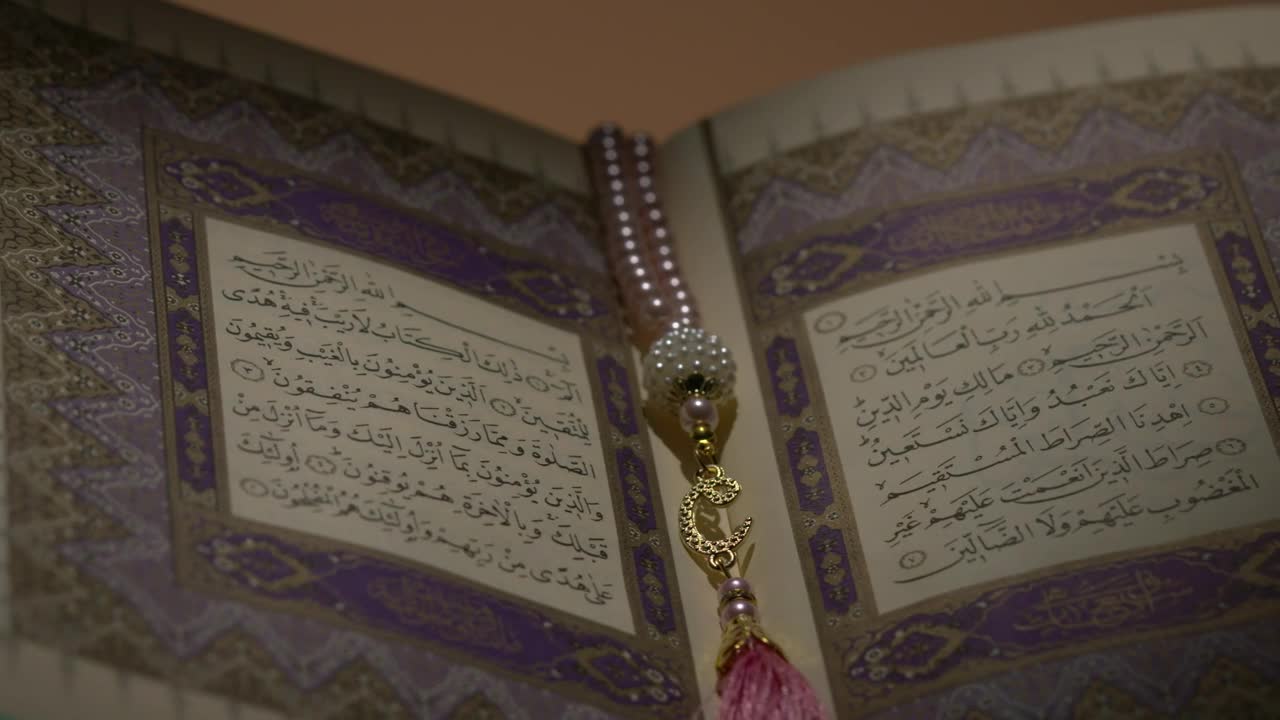 بِسْمِ اللهِ الرَّحْمٰنِ الرَّحِيمِ ﴿١﴾
اَلْحَمْدُ لِلّٰهِ رَبِّ الْعَالَمِينَ ﴿٢﴾
اَلرَّحْمٰنِ الرَّحِيمِ ﴿٣﴾ مَالِكِ يَوْمِ الدِّينِ ﴿٤﴾
اِيَّاكَ نَعْبُدُ وَاِيَّاكَ نَسْتَعِينُ ﴿٥﴾
اِهْدِنَا الصِّرَاطَ الْمُسْتَقِيمَ ﴿٦﴾
صِرَاطَ الَّذِينَ اَنْعَمْتَ عَلَيْهِمْ غَيْرِ
الْمَغْضُوبِ عَلَيْهِمْ وَلَا الضَّالِّينَ ﴿٧﴾
بِسْمِ اللهِ الرَّحْمٰنِ الرَّحِيمِ
الٓمٓ ﴿١﴾ ذٰلِكَ الْكِتَابُ لَا رَيْبَ فِيهِ هُدًى
لِلْمُتَّقِينَ ﴿٢﴾ اَلَّذِينَ يُؤْمِنُونَ بِالْغَيْبِ وَيُقِيمُونَ
الصَّلٰوةَ وَمِمَّا رَزَقْنَاهُمْ يُنْفِقُونَ ﴿٣﴾
وَالَّذِينَ يُؤْمِنُونَ بِمَٓا اُنْزِلَ اِلَيْكَ وَمَٓا اُنْزِلَ مِنْ
قَبْلِكَ وَبِالْاٰخِرَةِ هُمْ يُوقِنُونَ ﴿٤﴾ اُو۬لٰٓئِكَ
عَلٰى هُدًى مِنْ رَبِّهِمْ وَاُو۬لٰٓئِكَ هُمُ الْمُفْلِحُونَ ﴿٥﴾